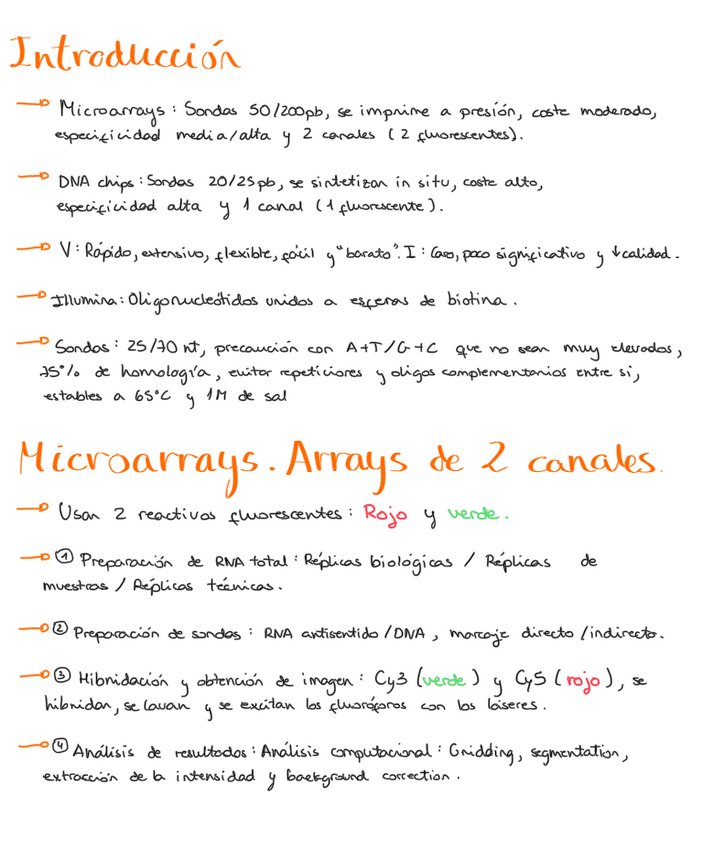 Introducción
Microarrays: Sondas 50/200pb, se imprime a presión, coste moderado,
especificidad media/alta y 2 canales (2 fluorescentes).
DNA chips: Sondas 20/25pb, se sintetizan in situ, coste alto,
especificidad alta y 1 canal (1 fluorescente).
V: Rápido, extensivo, flexible, fácil y "barato". I: Caro, poco significativo y ↓calidad.
Illumina: Oligonucleótidos unidos a esferas de biotina.
Sondas: 25/70 nt, precaución con A+T/G+C que no sean muy elevados,
75% de homología, evitar repeticiones y oligos complementarios entre sí,
estables a 65°C y 1M de sal
Microarrays. Arrays de 2 canales.
Usan 2 reactivos fluorescentes: Rojo y verde.
① Preparación de RNA total: Réplicas biológicas / Réplicas de
muestras / Réplicas técnicas.
② Preparación de sondas: RNA antisentido/DNA, marcaje directo/indirecto.
③ Hibridación y obtención de imagen: Cy3 (verde) y Cy5 (rojo), se
hibridan, se lavan y se excitan los fluoróforos con los láseres.
④ Análisis de resultados: Análisis computacional: Gridding, segmentation,
extracción de la intensidad y background correction.